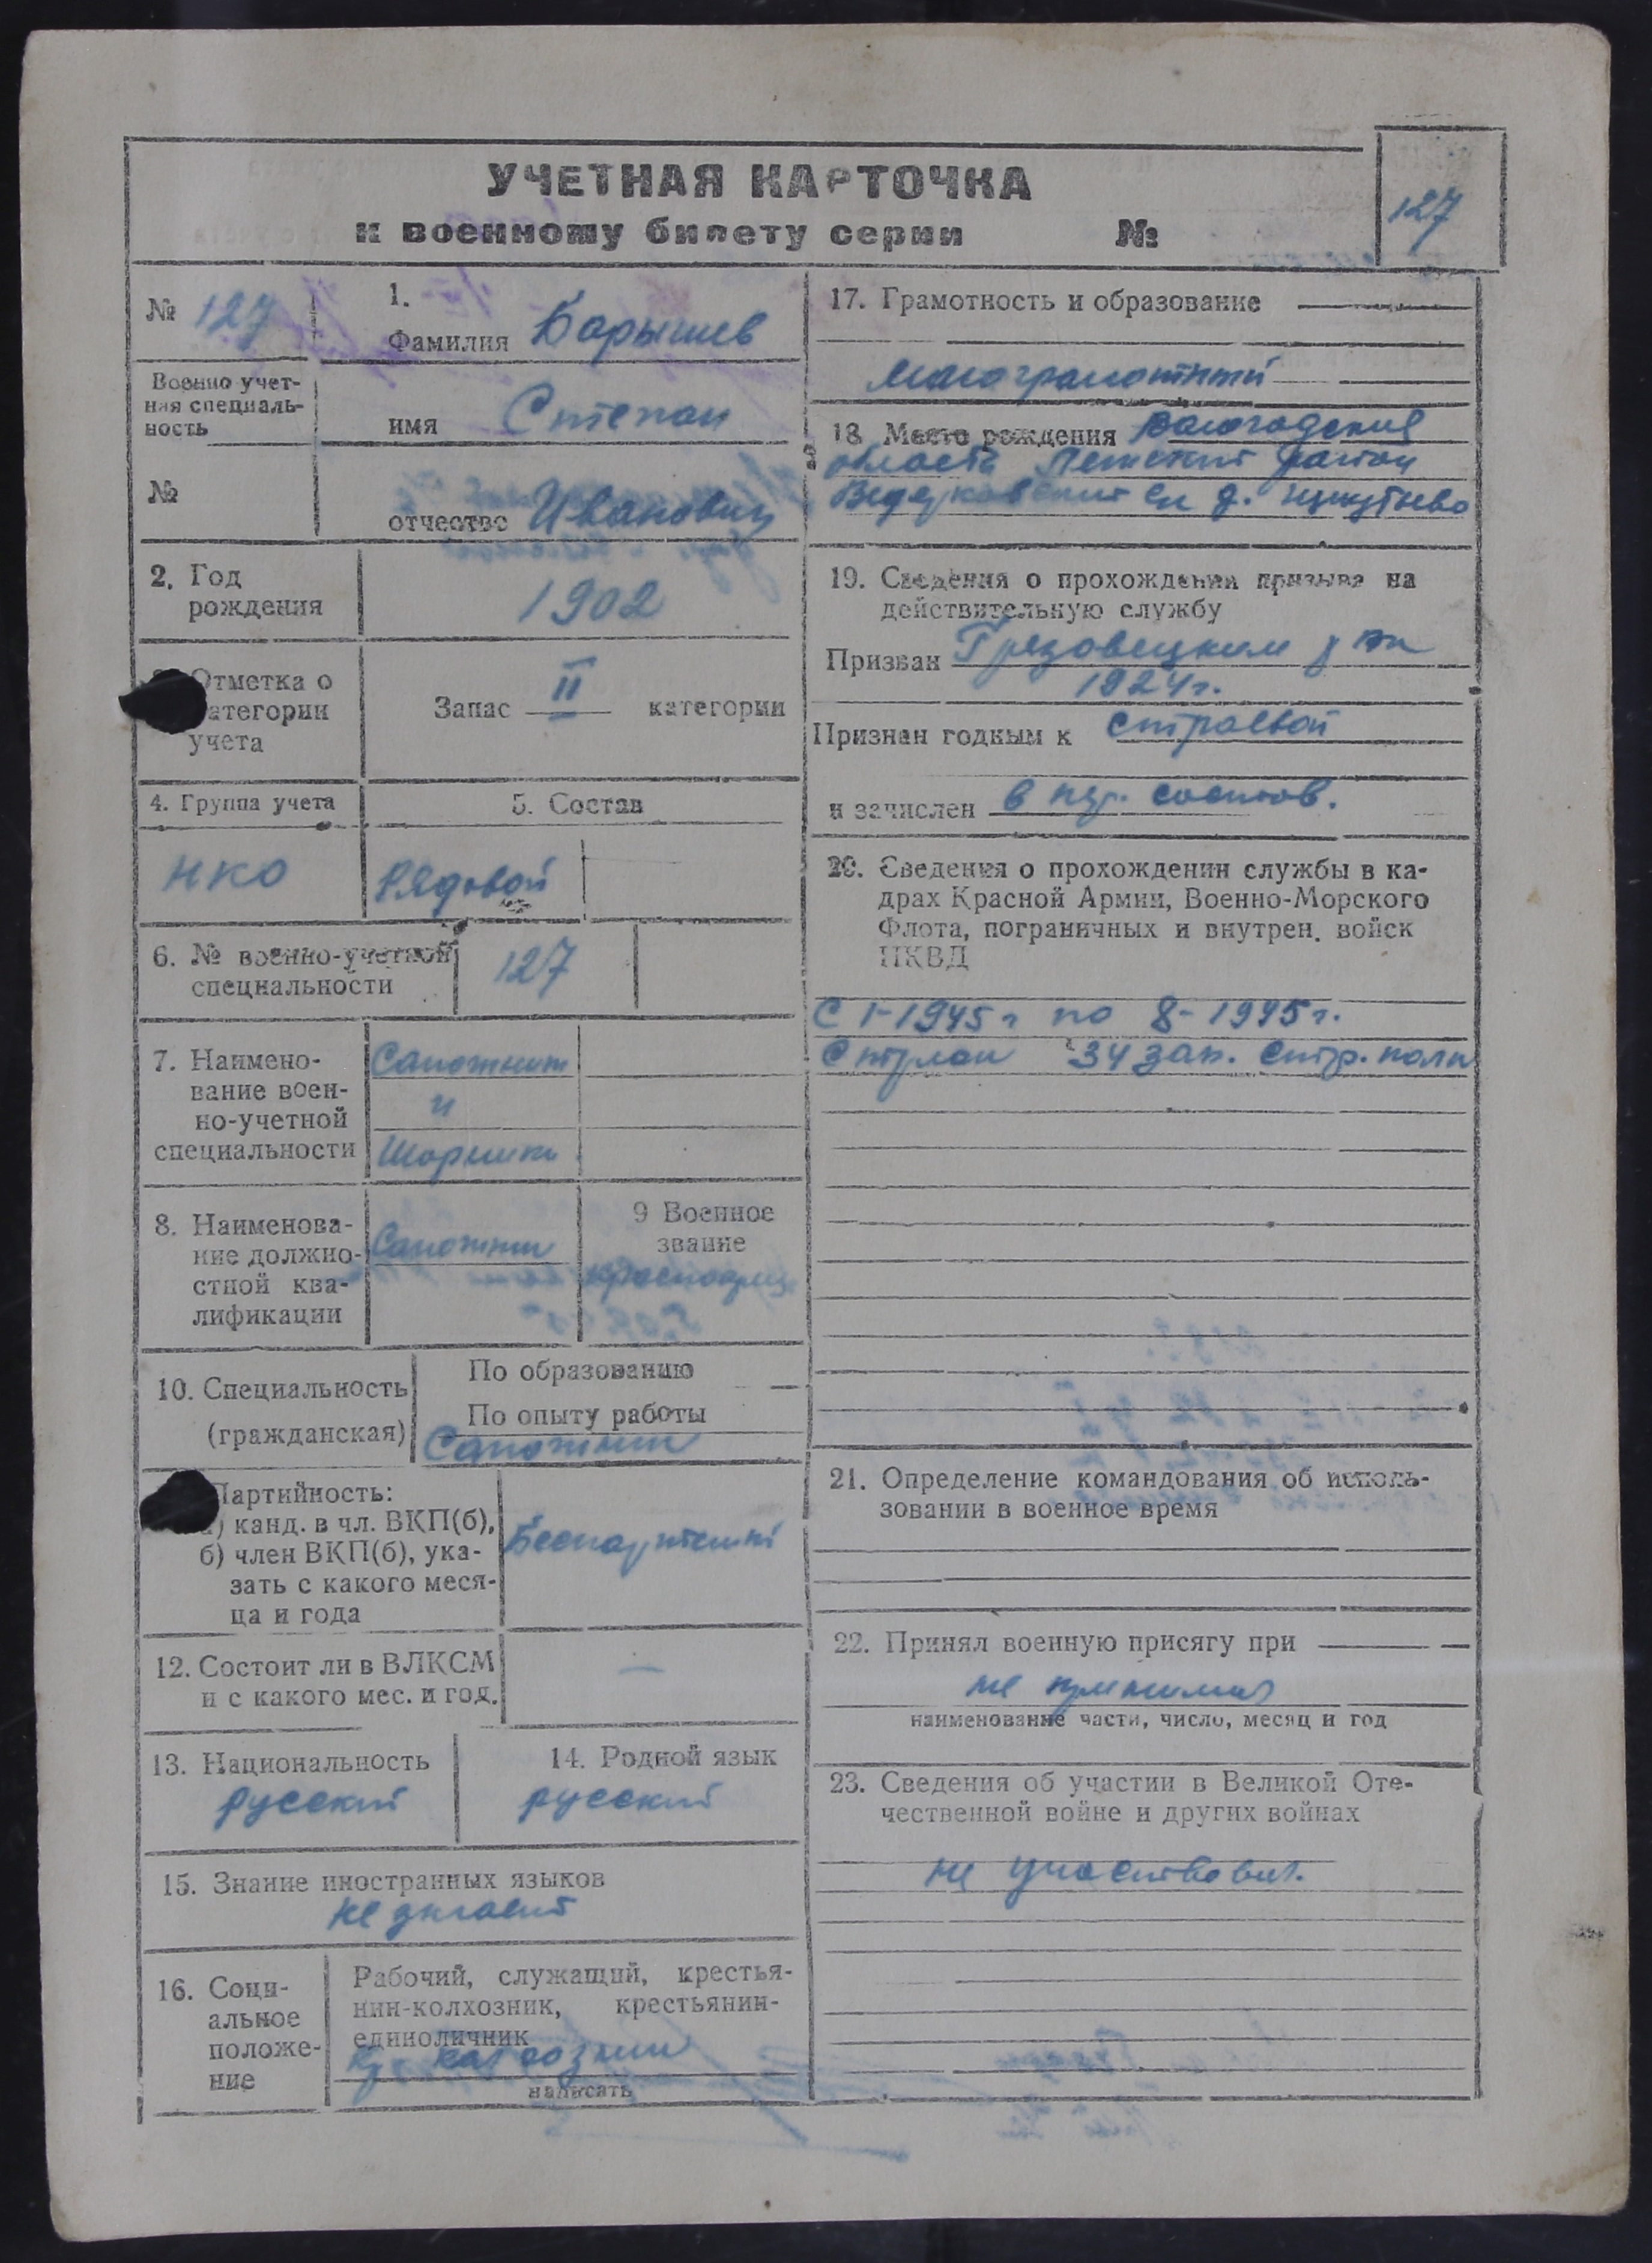 УЧЕТНАЯ КАРТОЧКА
к военному билету серии №
127
№ 127
1.
Фамилия Барышев
Военно учет-
ная специаль-
ность
имя Степан
№
отчество Иванович
2. Год
рождения
1902
Отметка о
категории
учета
Запас II категории
4. Группа учета
5. Состав
НКО
Рядовой
6. № военно-учетной
специальности
127
7. Наимено-
вание воен-
но-учетной
специальности
Сапожник
и
Шорник
8. Наименова-
ние должно-
стной ква-
лификации
Сапожник
9 Военное
звание
Красноармеец
10. Специальность
(гражданская)
По образованию —
По опыту работы
Сапожник
Партийность:
а) канд. в чл. ВКП(б),
б) член ВКП(б), ука-
зать с какого меся-
ца и года
Беспартийный
12. Состоит ли в ВЛКСМ
и с какого мес. и год.
—
13. Национальность
русский
14. Родной язык
русский
15. Знание иностранных языков
не знает
16. Соци-
альное
положе-
ние
Рабочий, служащий, крестья-
нин-колхозник, крестьянин-
единоличник
кр. колхозник
написать
17. Грамотность и образование
малограмотный
18. Место рождения Вологодская
область район
д.
19. Сведения о прохождении призыва на
действительную службу
Призван Грязовецким
1924 г.
Признан годным к строевой
и зачислен в
20. Сведения о прохождении службы в ка-
драх Красной Армии, Военно-Морского
Флота, пограничных и внутрен. войск
НКВД
С 1-1945 г по 8-1945 г.
Стрелок 34 зап. стр. полк
21. Определение командования об исполь-
зовании в военное время
22. Принял военную присягу при
не принимал
наименование части, число, месяц и год
23. Сведения об участии в Великой Оте-
чественной войне и других войнах
не участвовал.